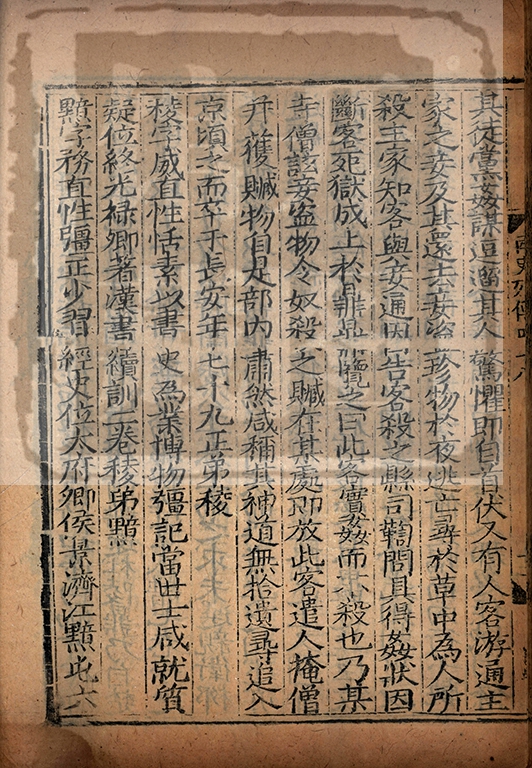 南史列傳四十八
其徒黨姦謀逗遛其人驚懼即自首伏又有人客游通主
家之妾及其還去妾盜珍物於夜逃亡尋於草中為人所
殺主家知客與妾通因告客殺之縣司鞫問具得姦狀因
斷客死獄成上於鼎鼎覽之曰此客實姦而不殺也乃某
寺僧詃妾盜物令奴殺之贓在某處即放此客遣人掩僧
并獲贓物自是部內肅然咸稱其神道無拾遺尋追入
京頃之而卒于長安年七十九正弟稜
稜字威直性恬素以書史為業博物彊記當世士咸就質
疑位終光祿卿著漢書續訓二卷稜弟黯
黯字務直性彊正少習經史位太府卿侯景濟江黯屯六